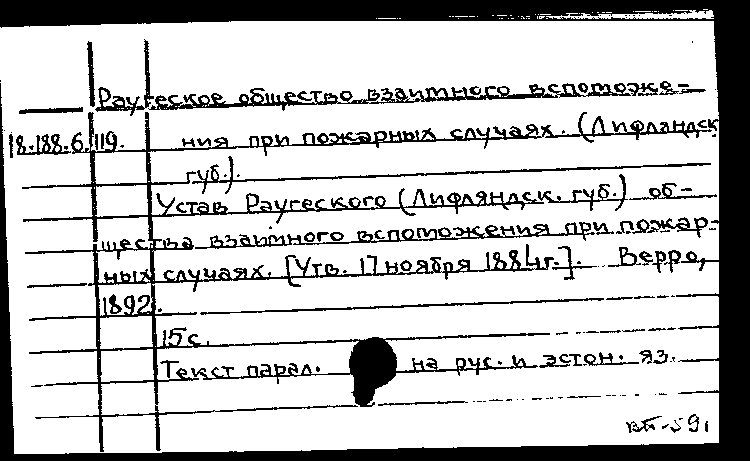 Раугеское общество взаимного вспоможе-
18.188.6.119. ния при пожарных случаях. (Лифляндск
губ.).
Устав Раугеского (Лифляндск. губ.) об-
щества взаимного вспоможения при пожар-
ных случаях. [Утв. 17 ноября 1884г.]. Верро,
1892.
15 с.
Текст парал. на рус. и эстон. яз.